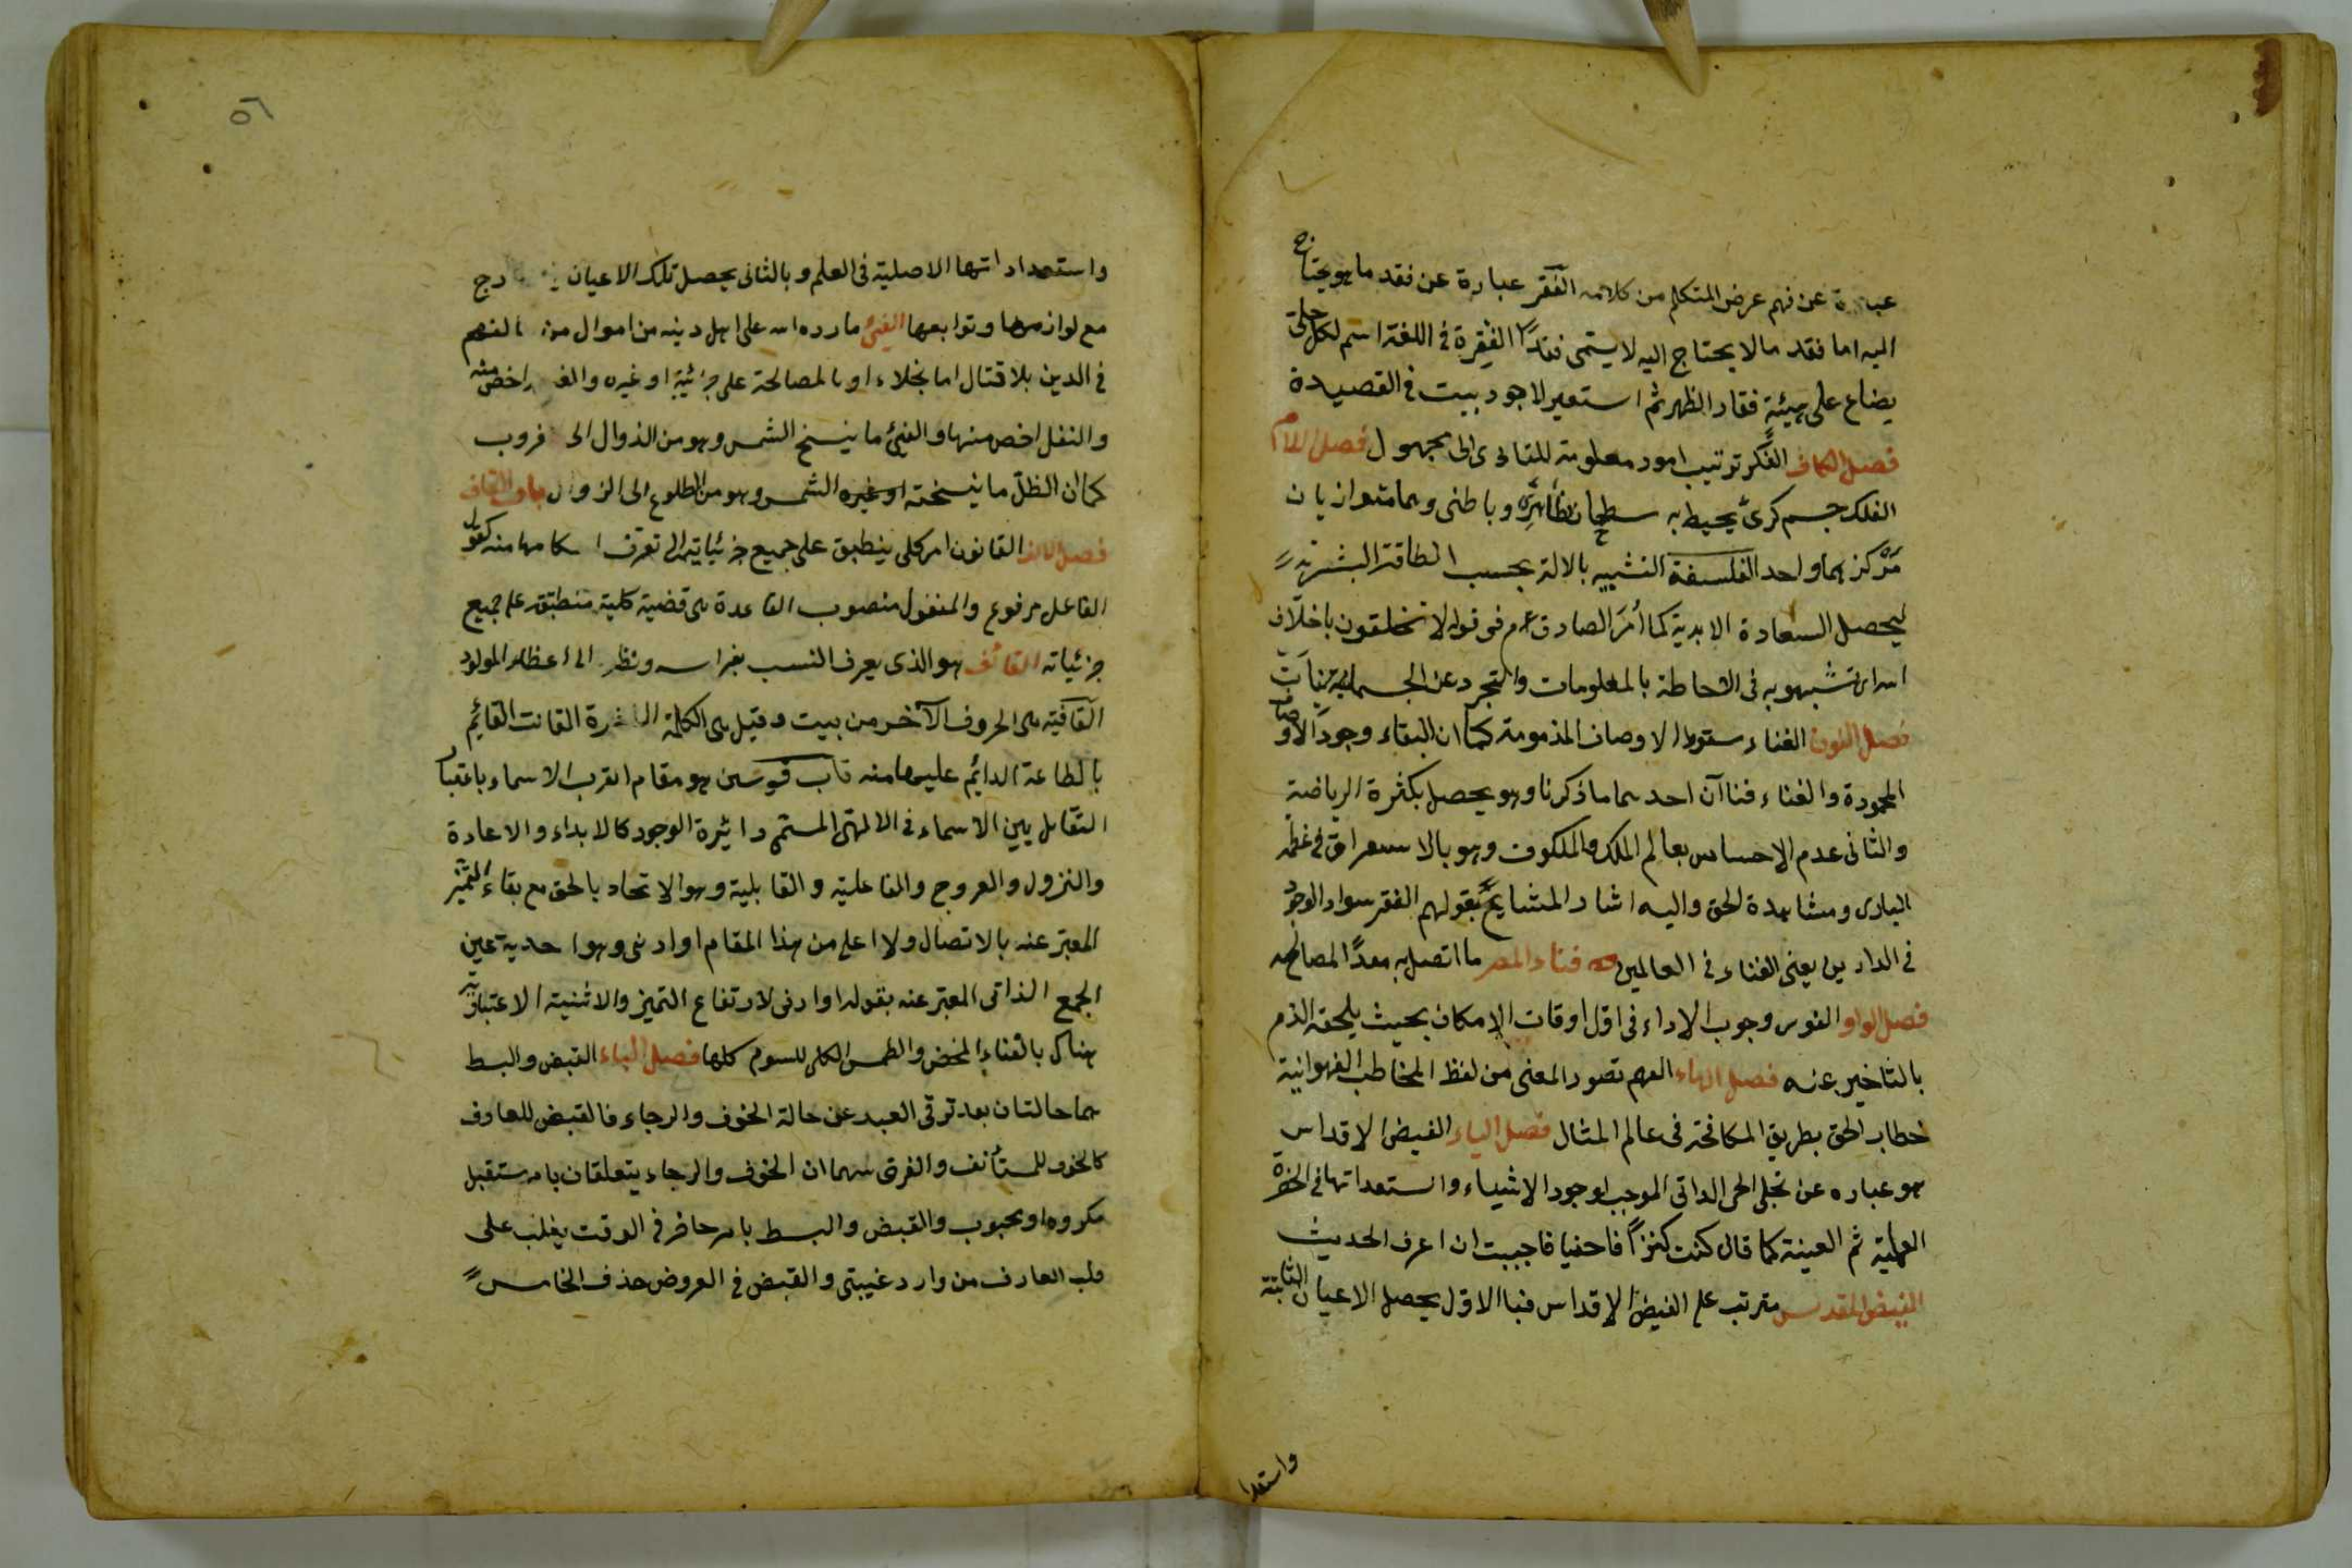 عبارة عن فهم غرض المتكلم من كلامه الفقر عبارة عن فقد ما هو يحتاج
اليه اما فقد مالا يحتاج اليه لا يسمى فقدًا الفقرة فى اللغة اسم لكل حلى
يصاغ على هيئة فقار الظهر ثم استعير لاجود بيت فى القصيدة
فصل الكاف الفكر ترتيب امور معلومة للتادى الى مجهول فصل اللام
الفلك جسم كرى يحيط به سطحان ظاهرى وباطنى وهما متوازيان
مركزهما واحد الفلسفة التشبيه بالاله بحسب الطاقة البشرية
ليحصل السعادة الابدية كما أمر الصادق عم فى قوله لا تخلقون باخلاق
الله اى تشبهوا به فى الاحاطة بالمعلومات والتجرد عن الجسمانيات
فصل النون الفناء سقوط الاوصاف المذمومة كما ان البقاء وجود الاوصاف
المحمودة والفناء فناآن احدهما ما ذكرنا وهو يحصل بكثرة الرياضة
والثانى عدم الاحساس بعالم الملك والملكوت وهو بالاستغراق فى عظمة
البارى ومشاهدة الحق واليه اشار المشايخ بقولهم الفقر سواد الوجه
فى الدارين يعنى الفناء فى العالمين فناء المصر ما اتصل به معدًا لمصالحه
فصل الواو الفور وجوب الاداء فى اول اوقات الامكان بحيث يلحقه الذم
بالتاخير عنه فصل الهاء الفهم تصور المعنى من لفظ المخاطب الفهوانية
خطاب الحق بطريق المكافحة فى عالم المثال فصل الياء الفيض الاقداس
هو عباره عن تجلى الحى الذاتى الموجب لوجود الاشياء واستعداتها فى الحضرة
العلمية ثم العينة كما قال كنت كنزًا فاحفيا فاحببت ان اعرف الحديث
الفيض المقدس مترتب على الفيض الاقداس فبا الاول يحصل الاعيان الثابتة
واستعدا
٥٦
واستعداداتها الاصلية فى العلم وبالثانى يحصل تلك الاعيان رج
مع لوازمها وتوابعها الفئ مارده الله على اهل دينه من اموال من
فى الدين بلا قتال اما بجلاء او بالمصالحة على جزئية او غيره والف اخص منه
والنفل اخص منها والفئ ما ينسخ الشمس وهو من الزوال الى غروب
كما ان الظل ما ينسخته او غيره الشمس وهو من الطلوع الى الزوال باب القاف
فصل الالف القانون امر كلى ينطبق على جميع جزئياتها لى تعرف احكامها منه كقول
الفاعل مرفوع والمفعول منصوب القاعدة هى قضية كلية منطبقة على جميع
جزئياته القائف هو الذى يعرف النسب بفراسه ونظره الى اعظاء المولود
القافية هى الحروف الآخر من بيت وقيل هى الكلمة الاخرة القانت القايم
بالطاعة الدايم عليها منه قاب قوسين هو مقام القرب الاسماء باعتبار
التقابل بين الاسماء فى الالهى المستمى دائيرة الوجود كالابداء والاعادة
والنزول والعروج والفاعلية والقابلية وهو الاتحاد بالحق مع بقاء التميز
المعبر عنه بالاتصال ولا اعلى من هذا المقام او ادنى وهو احدية عين
الجمع الذاتى المعبر عنه بقوله او ادنى لارتفاع التميز والاثنية الاعتبارية
هناك بالفناء المحض والطمس الكلى للسوم كلها فصل الباء القبض والبسط
هما حالتان بعد ترقى العبد عن حالة الخوف والرجاء فالقبض للعارف
كالخوف للمستأنف والفرق بينهما ان الخوف والرجاء يتعلقان بامر مستقبل
مكروه او محبوب والقبض والبسط بامر حاضر فى الوقت يغلب على
قلب العارف من وارد غيبتى والقبض فى العروض حذف الخامس